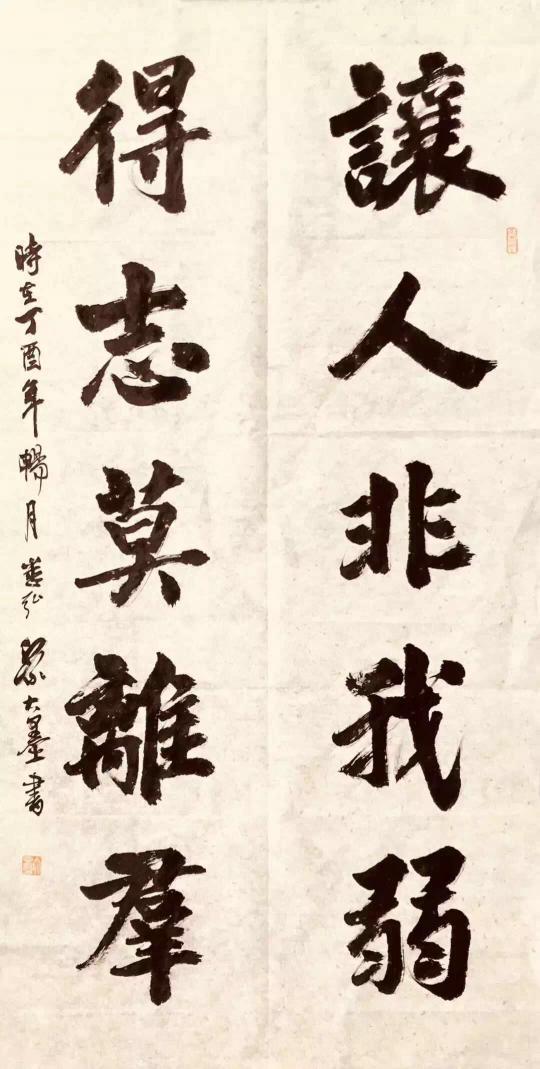 讓人非我弱
得志莫離羣
時在丁酉年暢月 大墨書